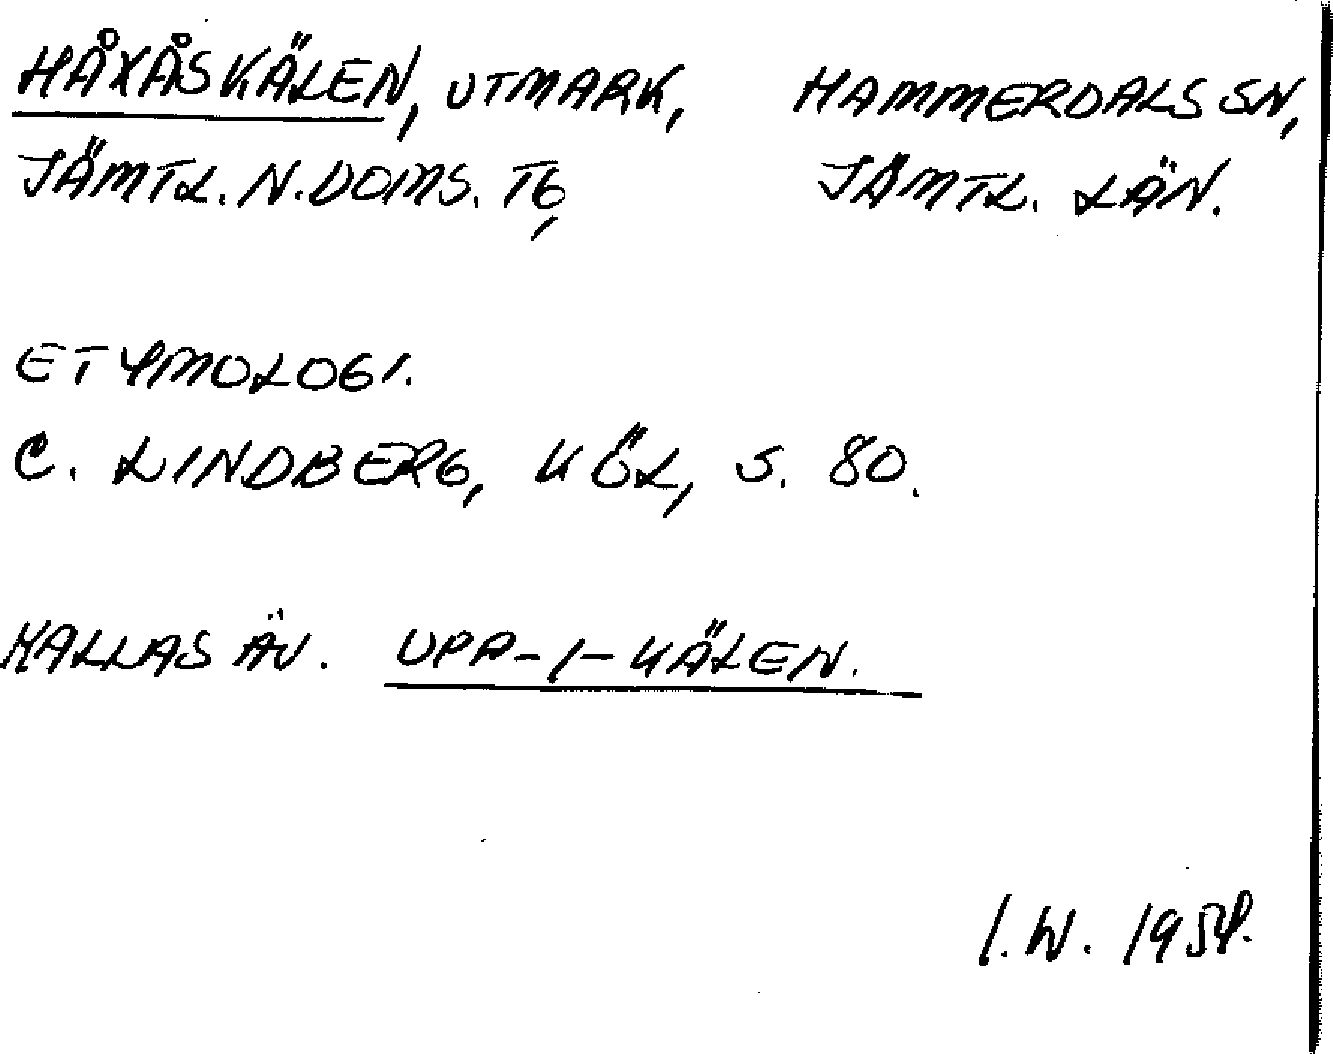 HÅXÅSKÄLEN, UTMARK, HAMMERDALS SN,
JÄMTL. N. DOMS. TG, JÄMTL. LÄN.
ETYMOLOGI.
C. LINDBERG, KÖL, S. 80.
KALLAS ÄV. UPP-I-KÄLEN.
I. W. 1954.